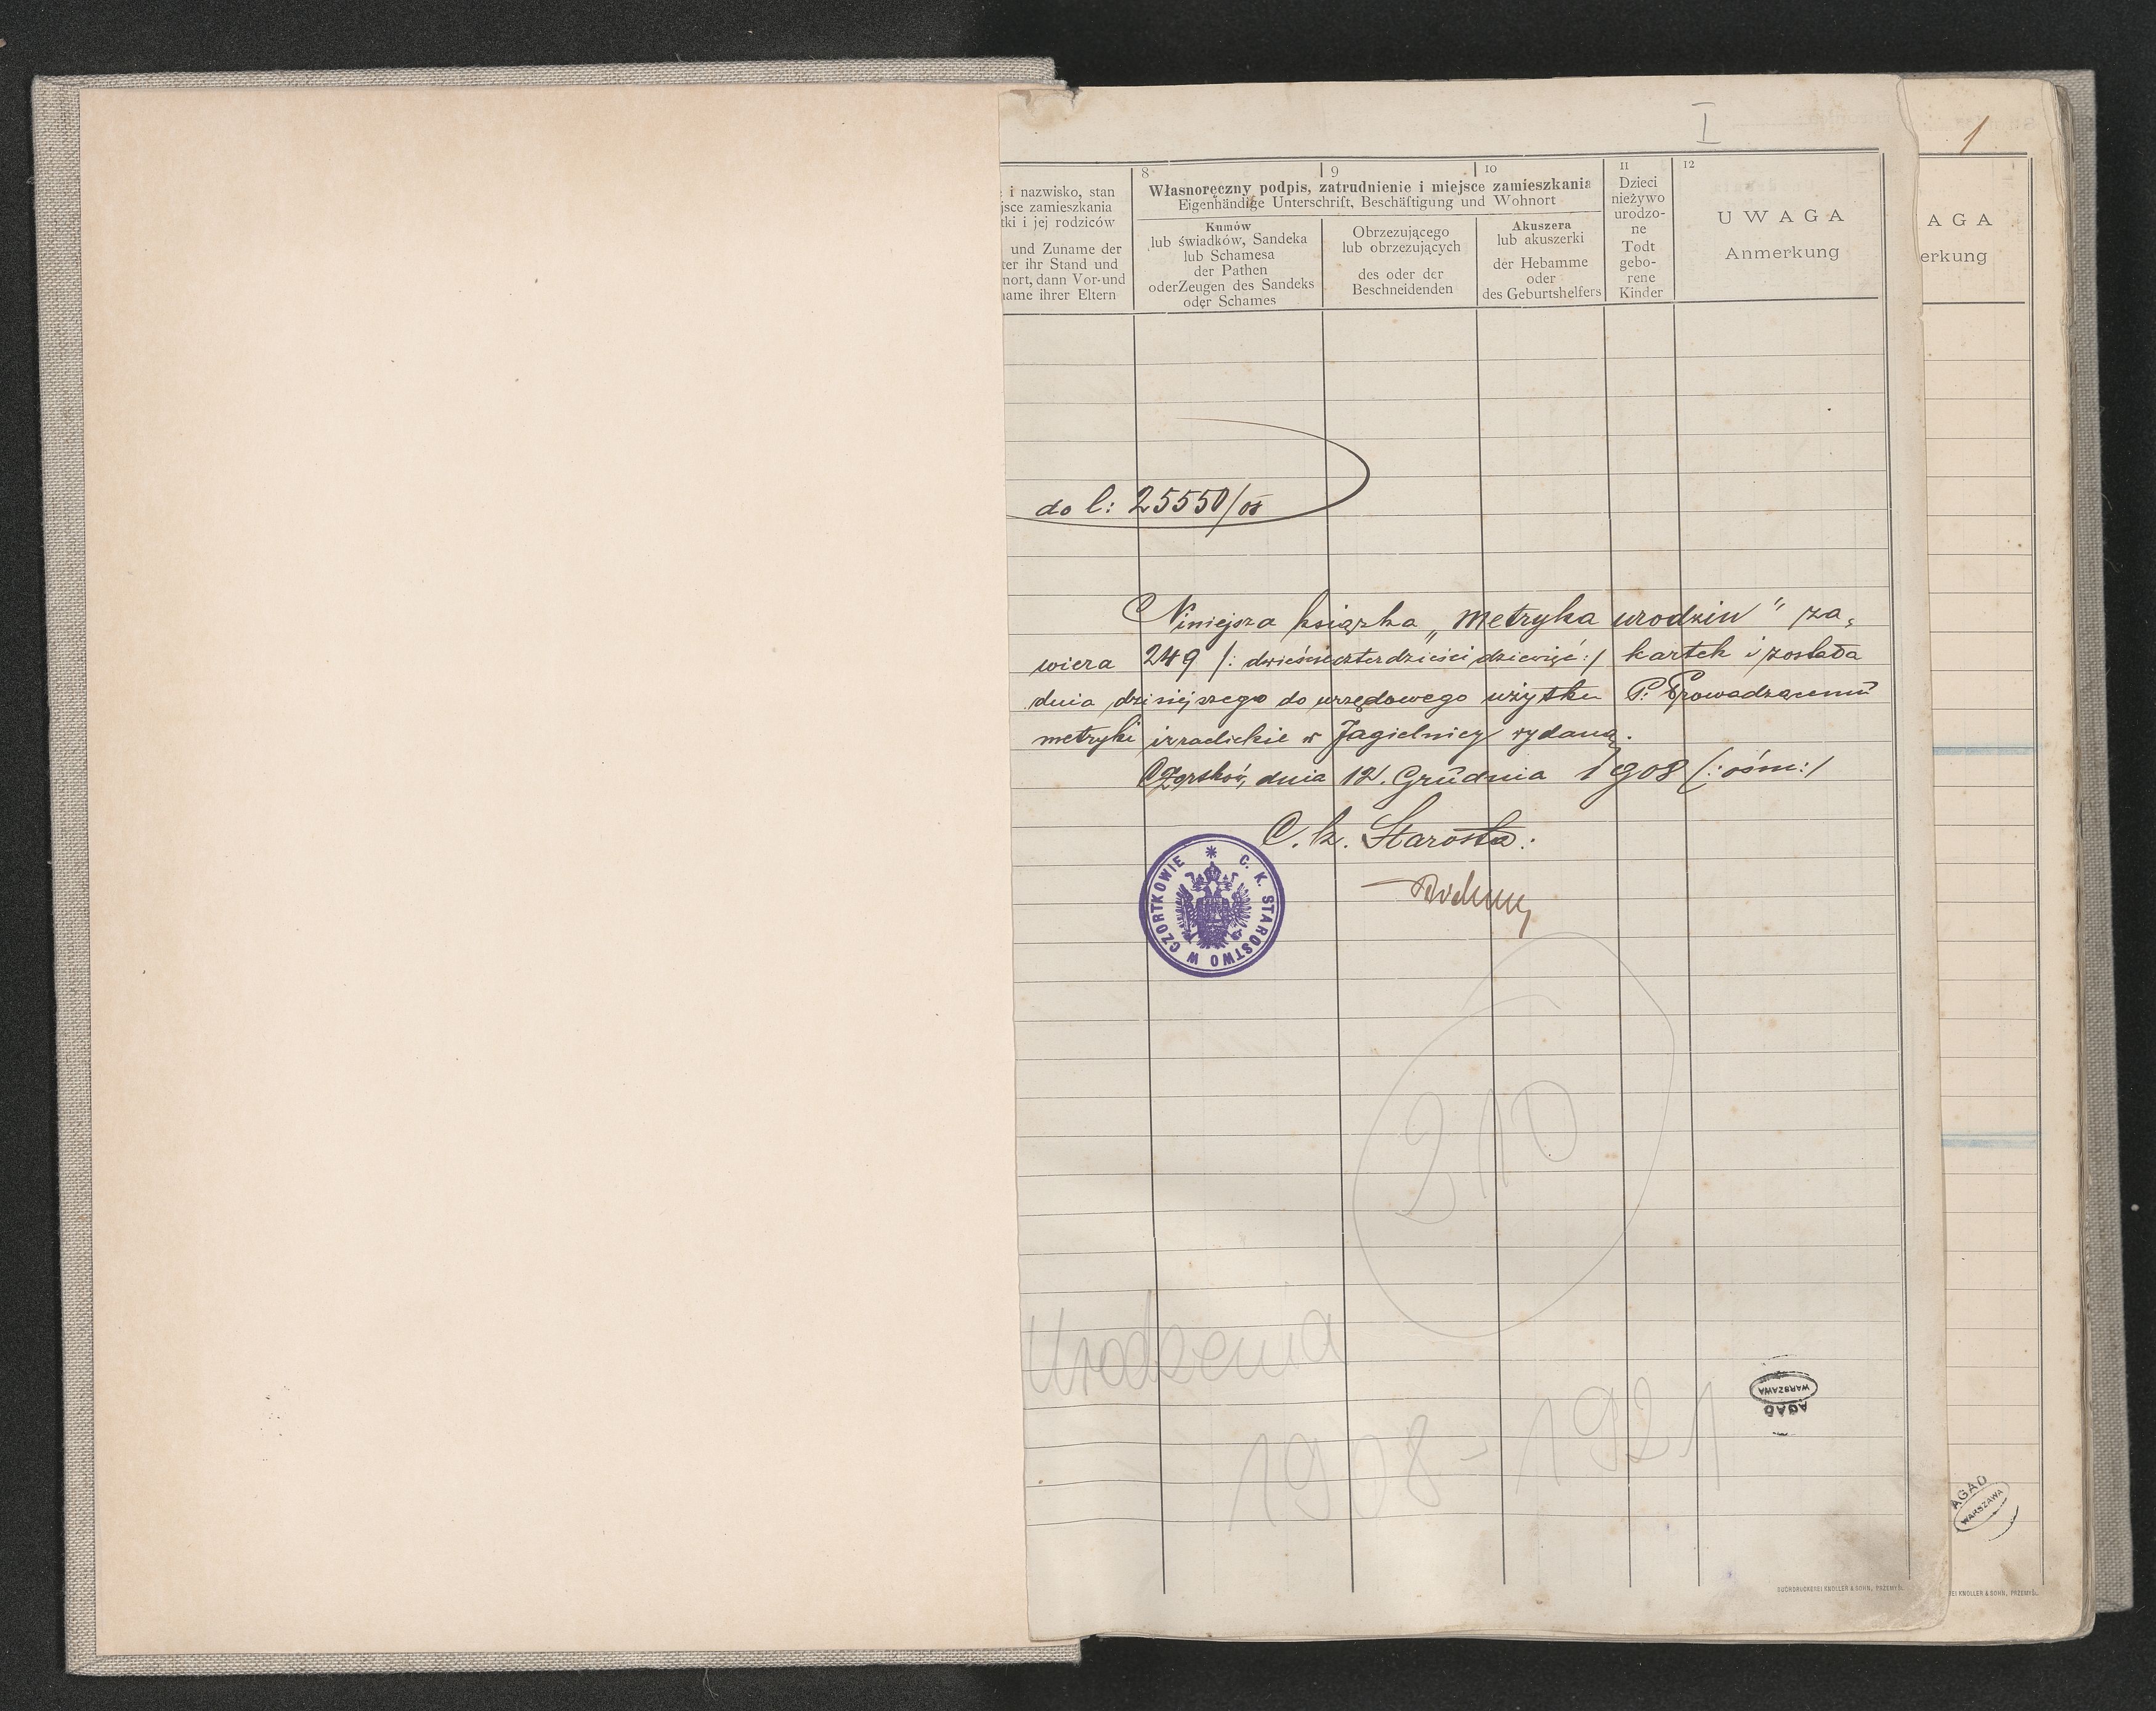 I
1
i nazwisko, stan
jsce zamieszkania
tki i jej rodziców
und Zuname der
ter ihr Stand und
nort, dann Vor-und
name ihrer Eltern
8
9
10
Własnoręczny podpis, zatrudnienie i miejsce zamieszkania
Eigenhändige Unterschrift, Beschäftigung und Wohnort
Kumów
lub świadków, Sandeka
lub Schamesa
der Pathen
oderZeugen des Sandeks
oder Schames
Obrzezującego
lub obrzezujących
des oder der
Beschneidenden
Akuszera
lub akuszerki
der Hebamme
oder
des Geburtshelfers
11
Dzieci
nieżywo
urodzo-
ne
Todt
gebo-
rene
Kinder
12
UWAGA
Anmerkung
AGA
erkung
do l: 25550/08
Niniejsza książka „Metryka urodzin" za-
wiera 249 /: dwieścieczterdzieścidziewięć :/ kartek i została
dnia dzisiejszego do urzędowego użytku P. Prowadzącemu
metryki izraelickie w Jagielnicy wydaną.
Czortków, dnia 12. Grudnia 1908 /: ośm :/
C. k. Starosta:
* C. K. STAROSTWO W CZORTKOWIE
210
Urodzenia
1908-1921
WARSZAWA
AGAD
AGAD
WARSZAWA
BUCHDRUCKEREI KNOLLER & SOHN, PRZEMYŚL
REI KNOLLER & SOHN, PRZEMYŚL